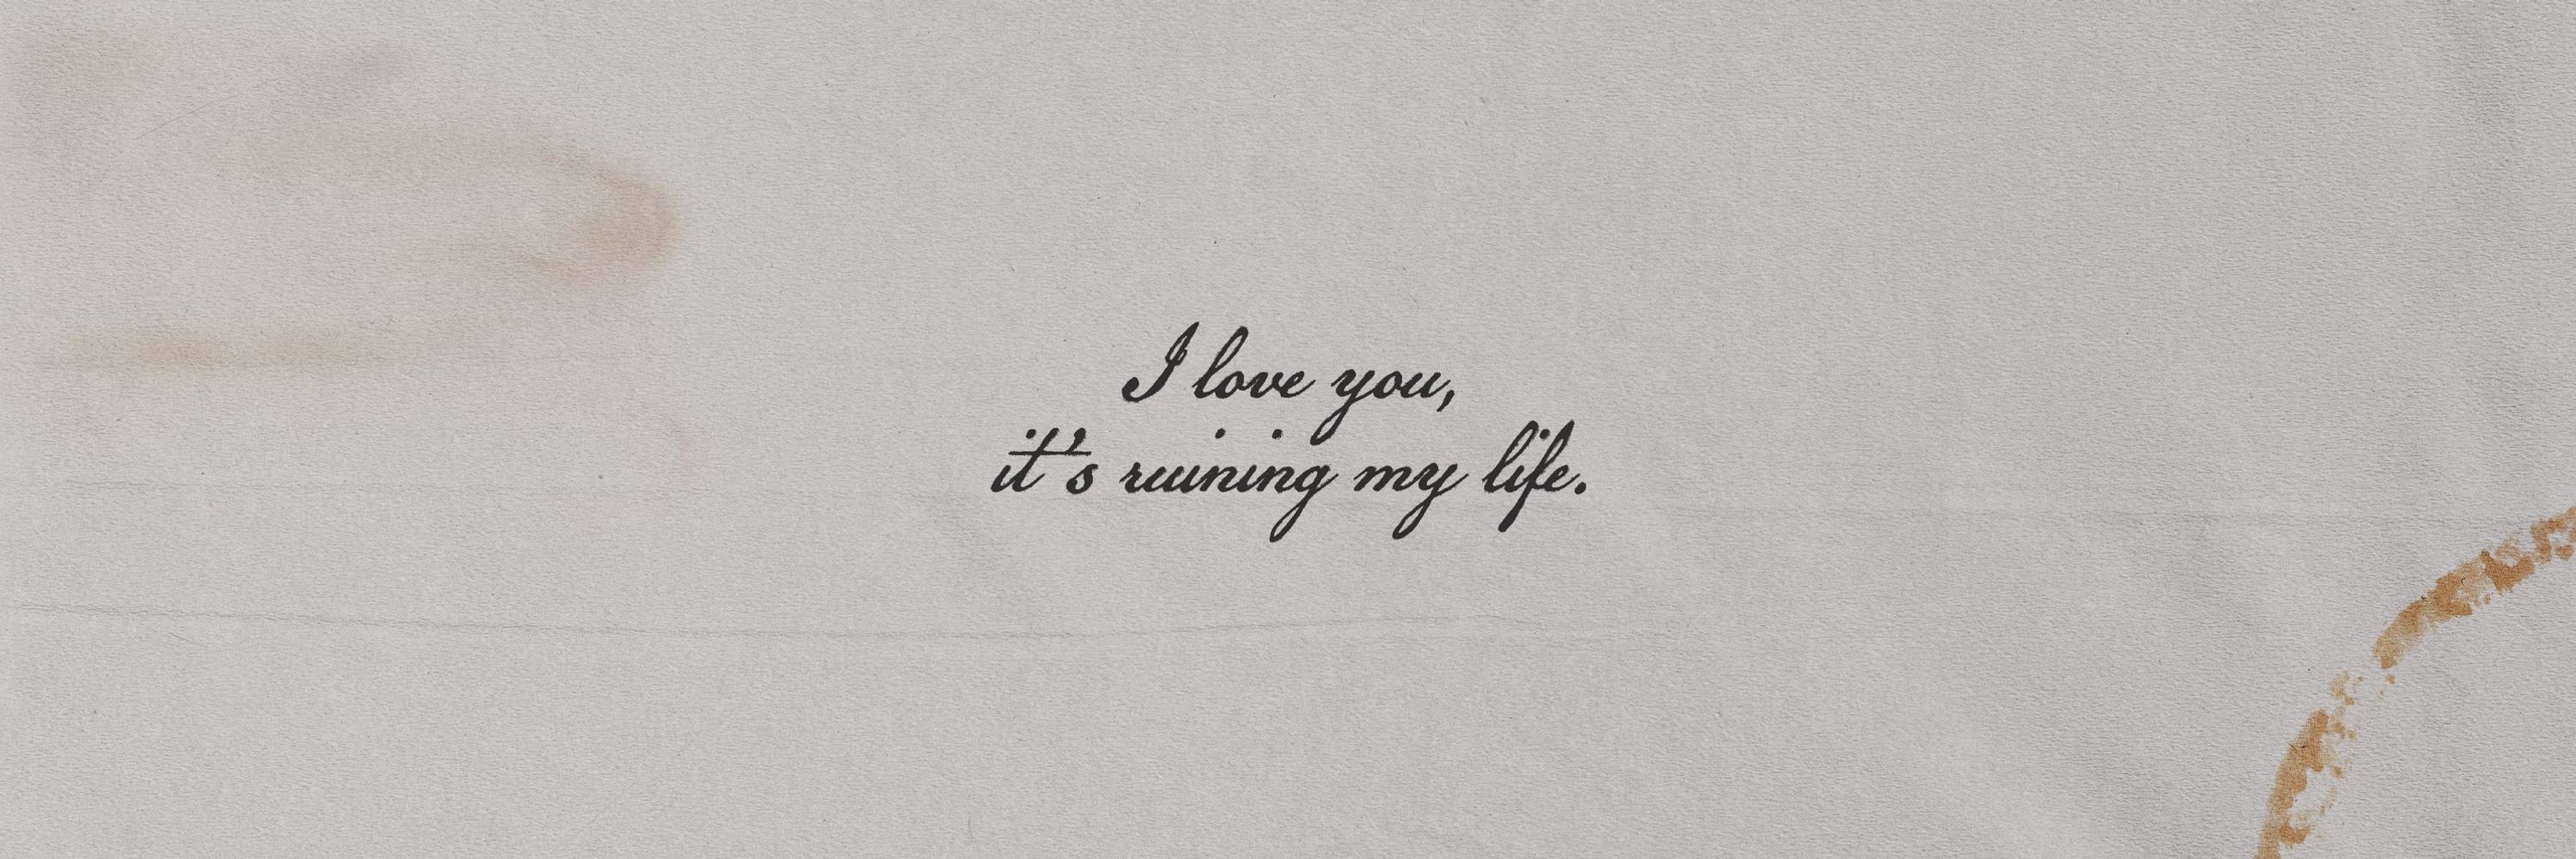 I love you,
it's ruining my life.